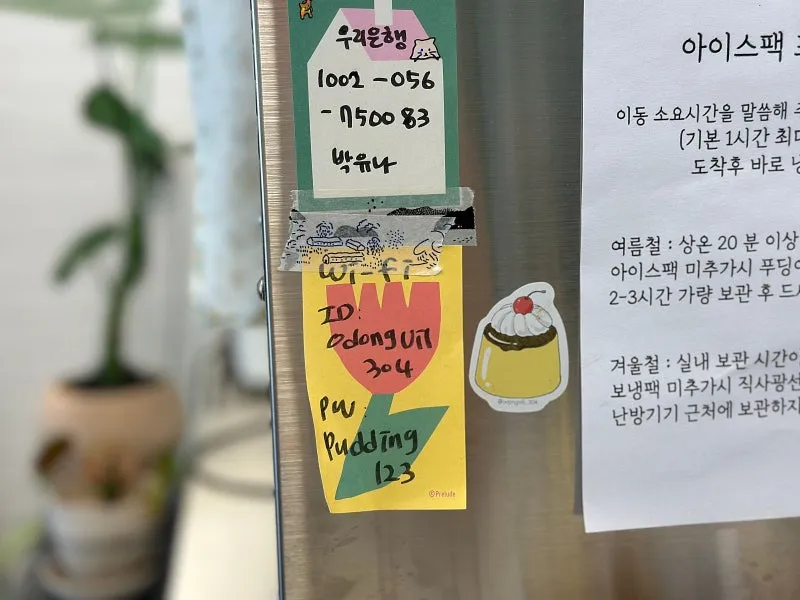 우리은행
1002-056
-750083
박유나
Wi-Fi
ID:
Odongvil
304
PW:
Pudding
123
©Prelude
@odongvil_304
아이스팩
이동 소요시간을 말씀해
(기본 1시간
도착후 바로
여름철 : 상온 20 분 이상
아이스팩 미추가시
2-3시간 가량 보관 후
겨울철 : 실내 보관 시간이
보냉팩 미추가시
난방기기 근처에